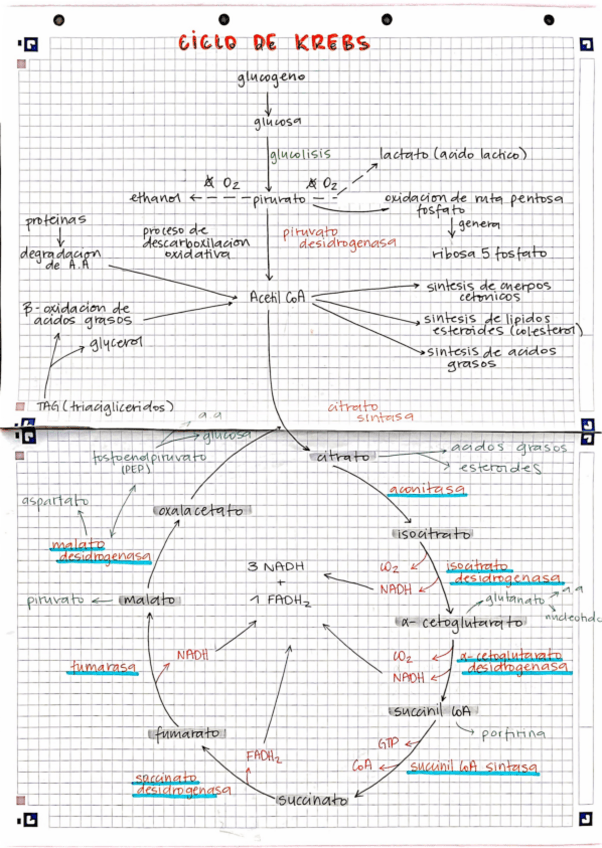 CICLO DE KREBS
glucogeno
glucosa
glucolisis
lactato (acido lactico)
O₂
O₂
ethanol
pirurato
oxidacion de ruta pentosa
fosfato
genera
ribosa 5 fosfato
proteinas
degradacion
de A.A
proceso de
descarboxilacion
oxidativa
piruvato
desidrogenasa
Acetil CoA
sintesis de cuerpos
cetonicos
sintesis de lipidos
esteroides (colesterol)
sintesis de acidos
grasos
β-oxidacion de
acidos grasos
glycerol
TAG (triacigliceridos)
citrato
sintasa
a a
glucosa
fosfoenolpiruvato
(PEP)
citrato
acidos grasos
esteroides
aconitasa
aspartato
oxalacetato
isocitrato
malato
desidrogenasa
3 NADH
+
1 FADH₂
CO₂
NADH
isocitrato
desidrogenasa
piruvato
malato
α- cetoglutarato
glutanato
a a
nucleotido
fumarasa
NADH
CO₂
NADH
α-cetoglutarato
desidrogenasa
succinil CoA
porfirina
fumarato
FADH₂
GTP
CoA
succinil CoA sintasa
succinato
desidrogenasa
succinato